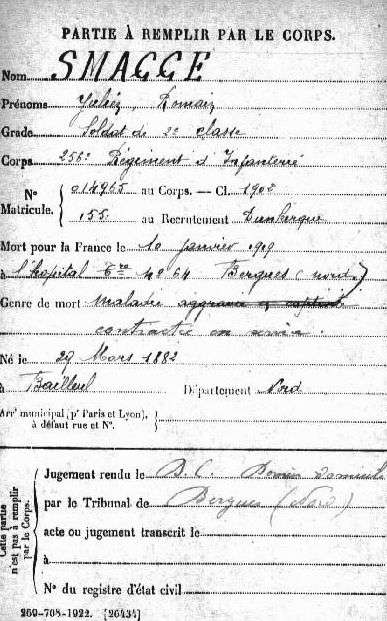 PARTIE À REMPLIR PAR LE CORPS.
Nom SMAGGE
Prénoms Jules, Romain
Grade Soldat de 2e classe
Corps 256e Régiment d'Infanterie
N° Matricule. 014965 au Corps. — Cl. 1902
155 au Recrutement Dunkerque
Mort pour la France le 10 janvier 1919
à l'hopital Tre n° 64 Bergues (nord)
Genre de mort maladie aggravée en captivité
contractée en service.
Né le 29 Mars 1882
à Bailleul Département Nord
Arrt municipal (pr Paris et Lyon),
à défaut rue et N°.
Cette partie n'est pas à remplir par le Corps.
Jugement rendu le D. C. Domicile
par le Tribunal de Bergues (Nord)
acte ou jugement transcrit le
à
N° du registre d'état civil
269-708-1922. [26434]